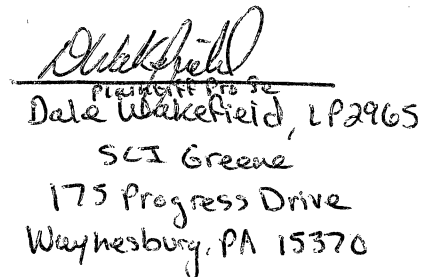 DWakefield
Plaintiff Pro Se
Dale Wakefield, LP2965
SCI Greene
175 Progress Drive
Waynesburg, PA 15370